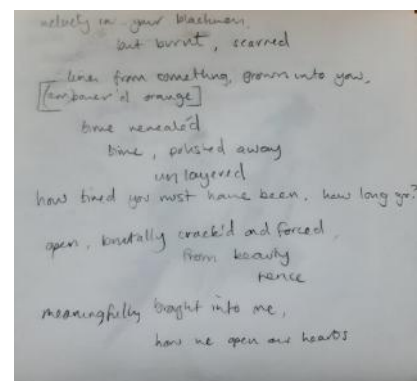 velvety in your blackness,
but burnt, scarred
lines from something, grown into you,
orange]
time reveal'd
time, polished away
unlayered
how tired you must have been, how long
open, brutally crack'd and forced,
from beauty
hence
meaningfully brought into me,
how we open our hearts